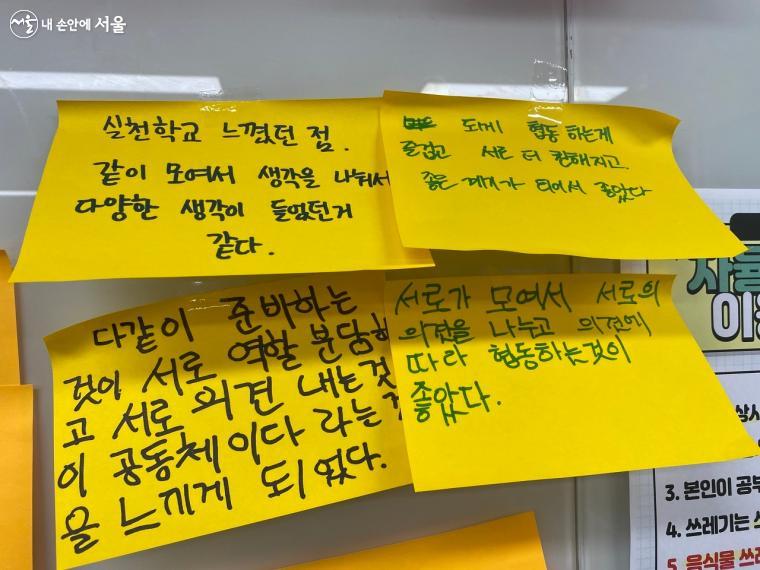 서울 내 손안에 서울
실천학교 느꼈던 점.
같이 모여서 생각을 나눠서
다양한 생각이 들었던거
같다.
되게 협동 하는게
즐겁고 서로 더 친해지고
좋은 계기가 되어서 좋았다
다같이 준비하는
것이 서로 역할 분담하
고 서로 의견 내는것
이 공동체이다 라는
을 느끼게 되었다.
서로가 모여서 서로의
의견을 나누고 의견에
따라 협동하는것이
좋았다.
자율
이용
3. 본인이 공부
4. 쓰레기는
5. 음식물 쓰레